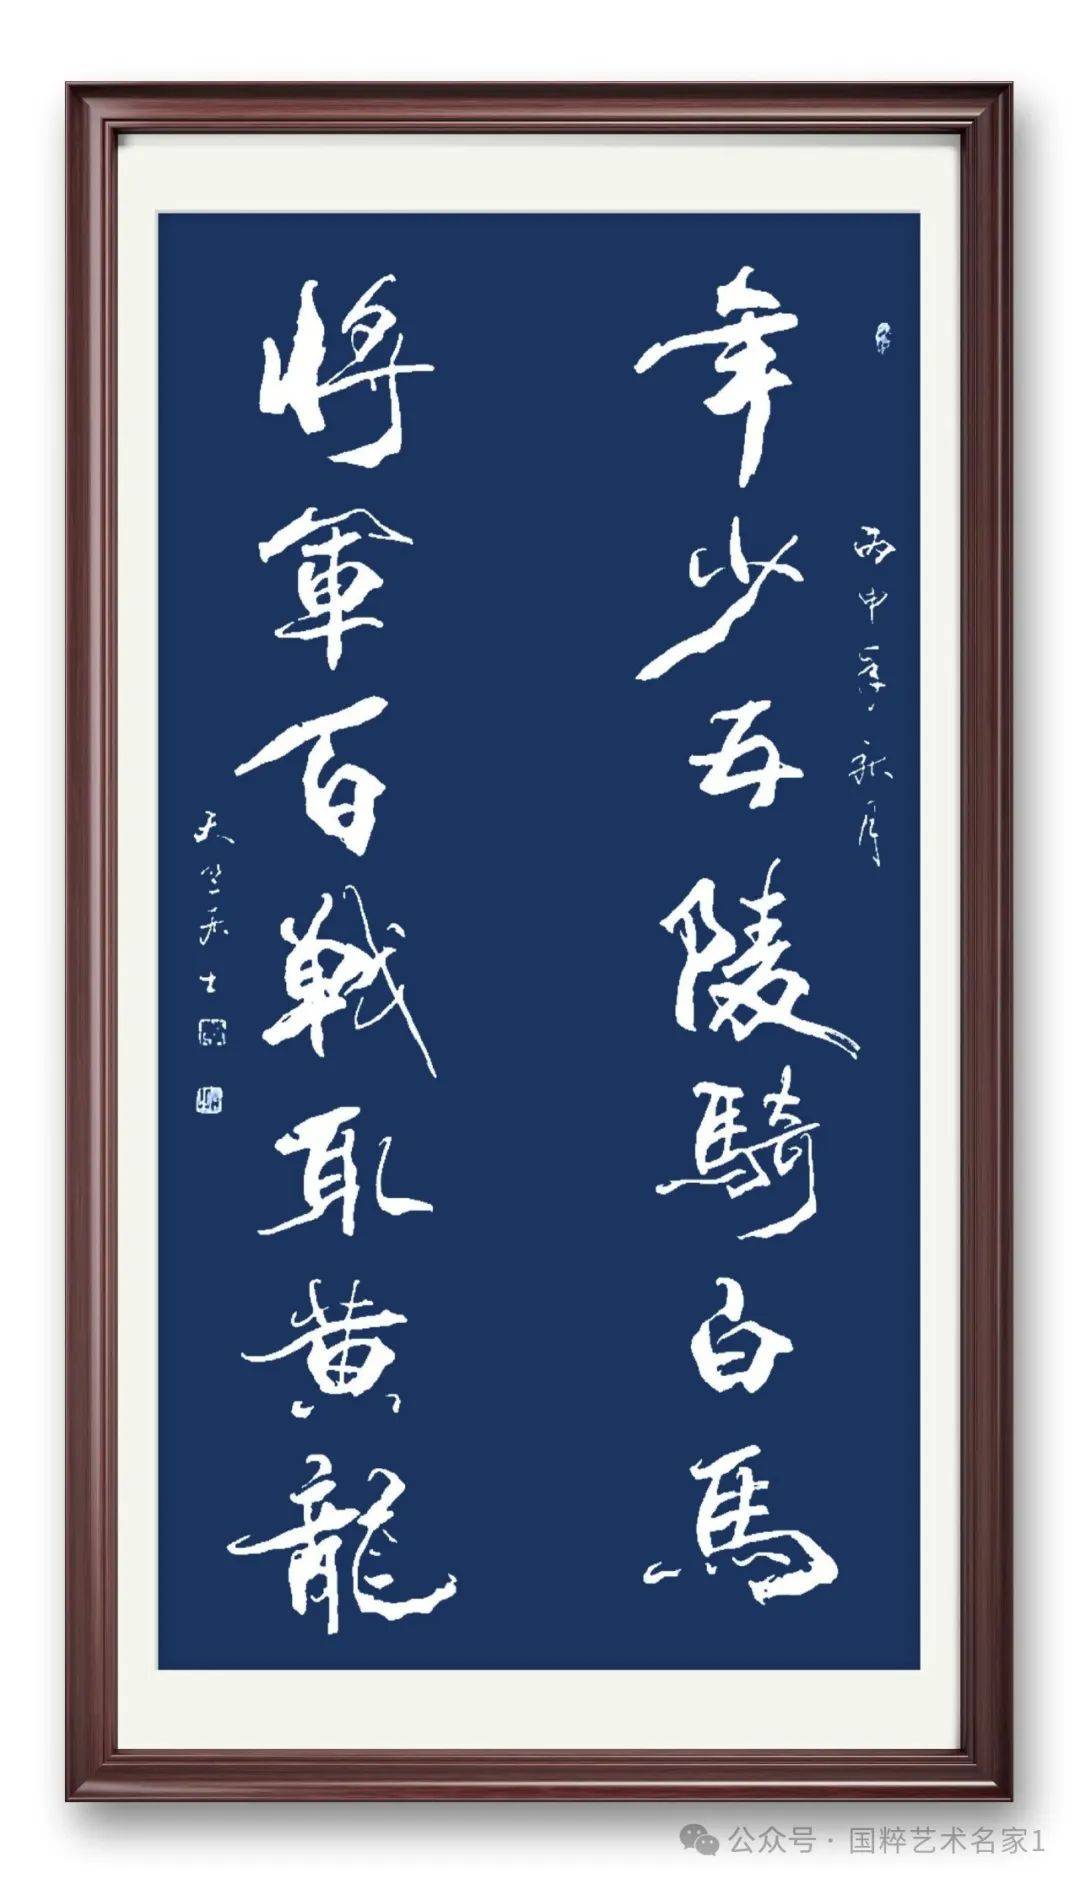 丙申季秋月
年少五陵騎白馬
將軍百戰取黄龍
天竺居士
公众号 · 国粹艺术名家1